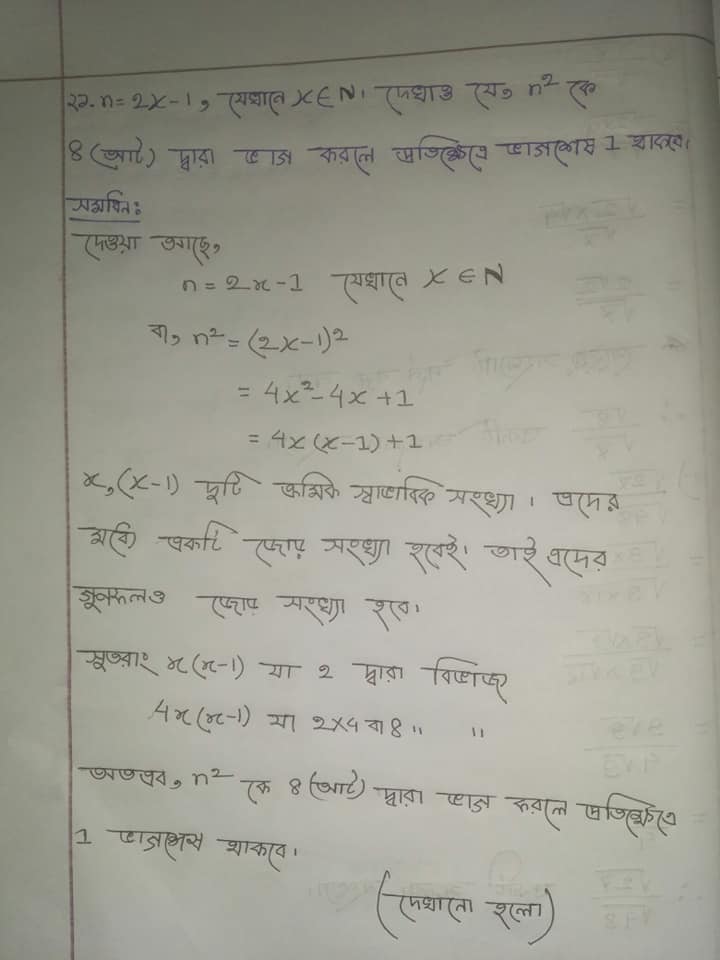 ২২. n = 2x-1, যেখানে x ∈ N। দেখাও যে, n² কে
8 (আট) দ্বারা ভাগ করলে প্রতিক্ষেত্রে ভাগশেষ 1 থাকবে।
সমাধান:
দেওয়া আছে,
n = 2x-1 যেখানে x ∈ N
বা, n² = (2x-1)²
= 4x²-4x+1
= 4x(x-1)+1
x, (x-1) দুটি ক্রমিক স্বাভাবিক সংখ্যা। এদের
মধ্যে একটি জোড় সংখ্যা হবেই। তাই এদের
গুনফলও জোড় সংখ্যা হবে।
সুতরাং x(x-1) যা 2 দ্বারা বিভাজ্য
4x(x-1) যা 2×4 বা 8 " "
অতএব, n² কে 8 (আট) দ্বারা ভাগ করলে প্রতিক্ষেত্রে
1 ভাগশেষ থাকবে।
(দেখানো হলো)